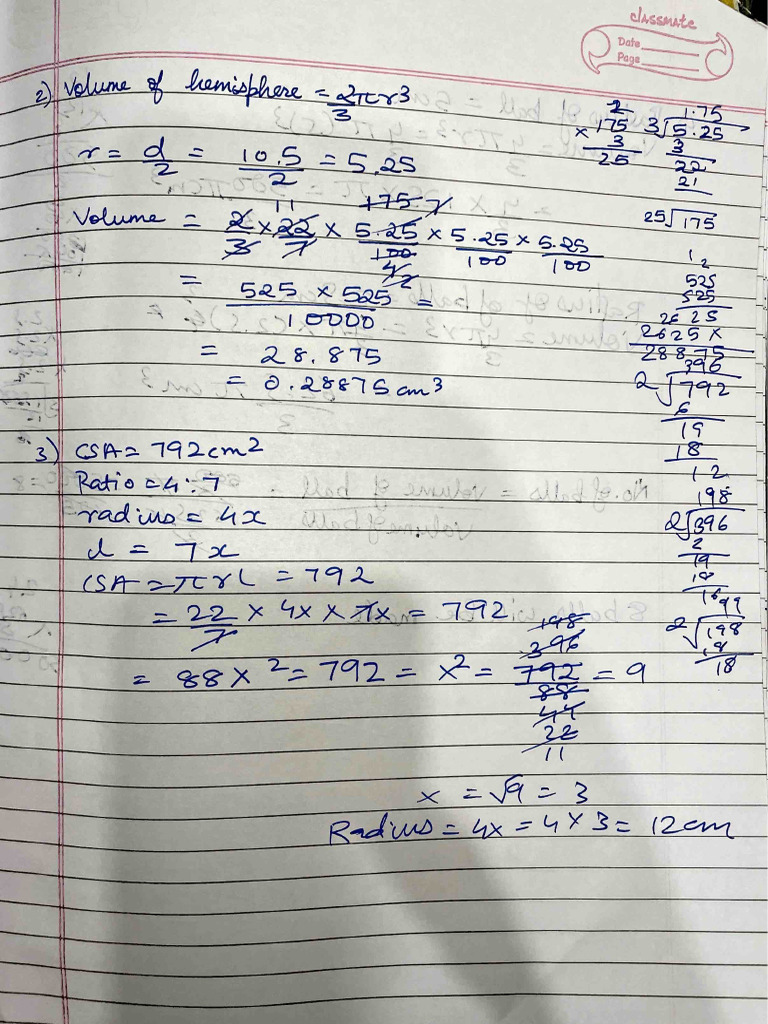 classmate
Date
Page
2) Volume of hemisphere = 2πr3/3
r = d/2 = 10.5/2 = 5.25
11 175 7
Volume = 2/3 × 22/7 × 5.25/100 × 5.25/100 × 5.25/100
4 2
= 525 × 525/10000 =
= 28.875
= 0.28875 cm3
2
× 175
3
25
1.75
3√5.25
3
22
21
25√175
1 2
525
525
2625
2625×
28875
396
2√792
6
19
18
12
198
2√396
2
19
18
16
99
2√198
18
18
3) CSA = 792 cm2
Ratio = 4:7
radius = 4x
l = 7x
CSA = πrl = 792
= 22/7 × 4x × 7x = 792
198
396
= 88x2 = 792 = x2 = 792/88 = 9
44
22
11
x = √9 = 3
Radius = 4x = 4 × 3 = 12cm